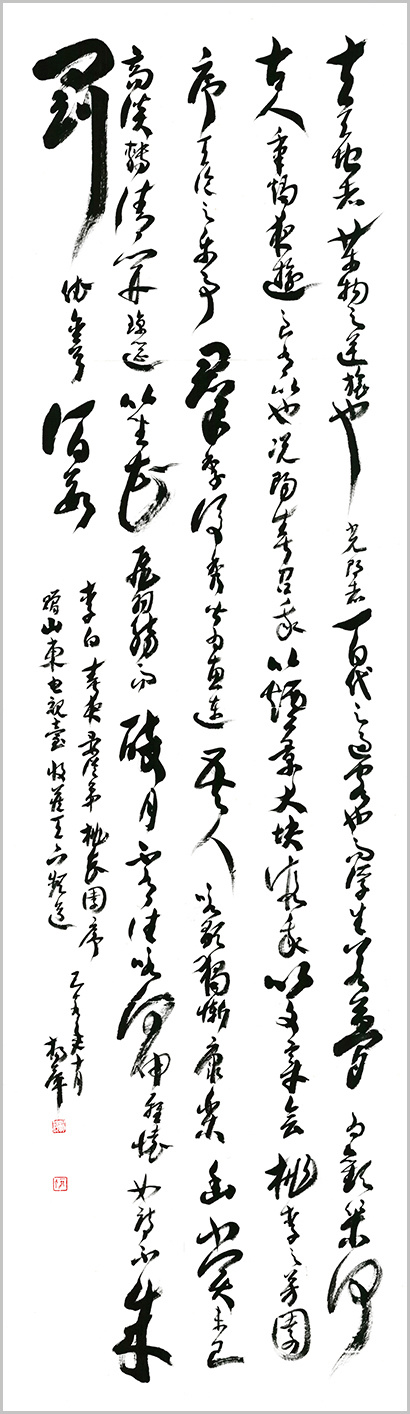 夫天地者萬物之逆旅也光陰者百代之過客也而浮生若夢為歡幾何
古人秉燭夜遊良有以也況陽春召我以煙景大塊假我以文章會桃李之芳園
序天倫之樂事群季俊秀皆為惠連吾人詠歌獨慚康樂幽賞未已
高談轉清開瓊筵以坐花飛羽觴而醉月不有佳詠何伸雅懷如詩不成
罰依金谷酒數
李白春夜宴從弟桃花園序
山東電視臺收藏
十月